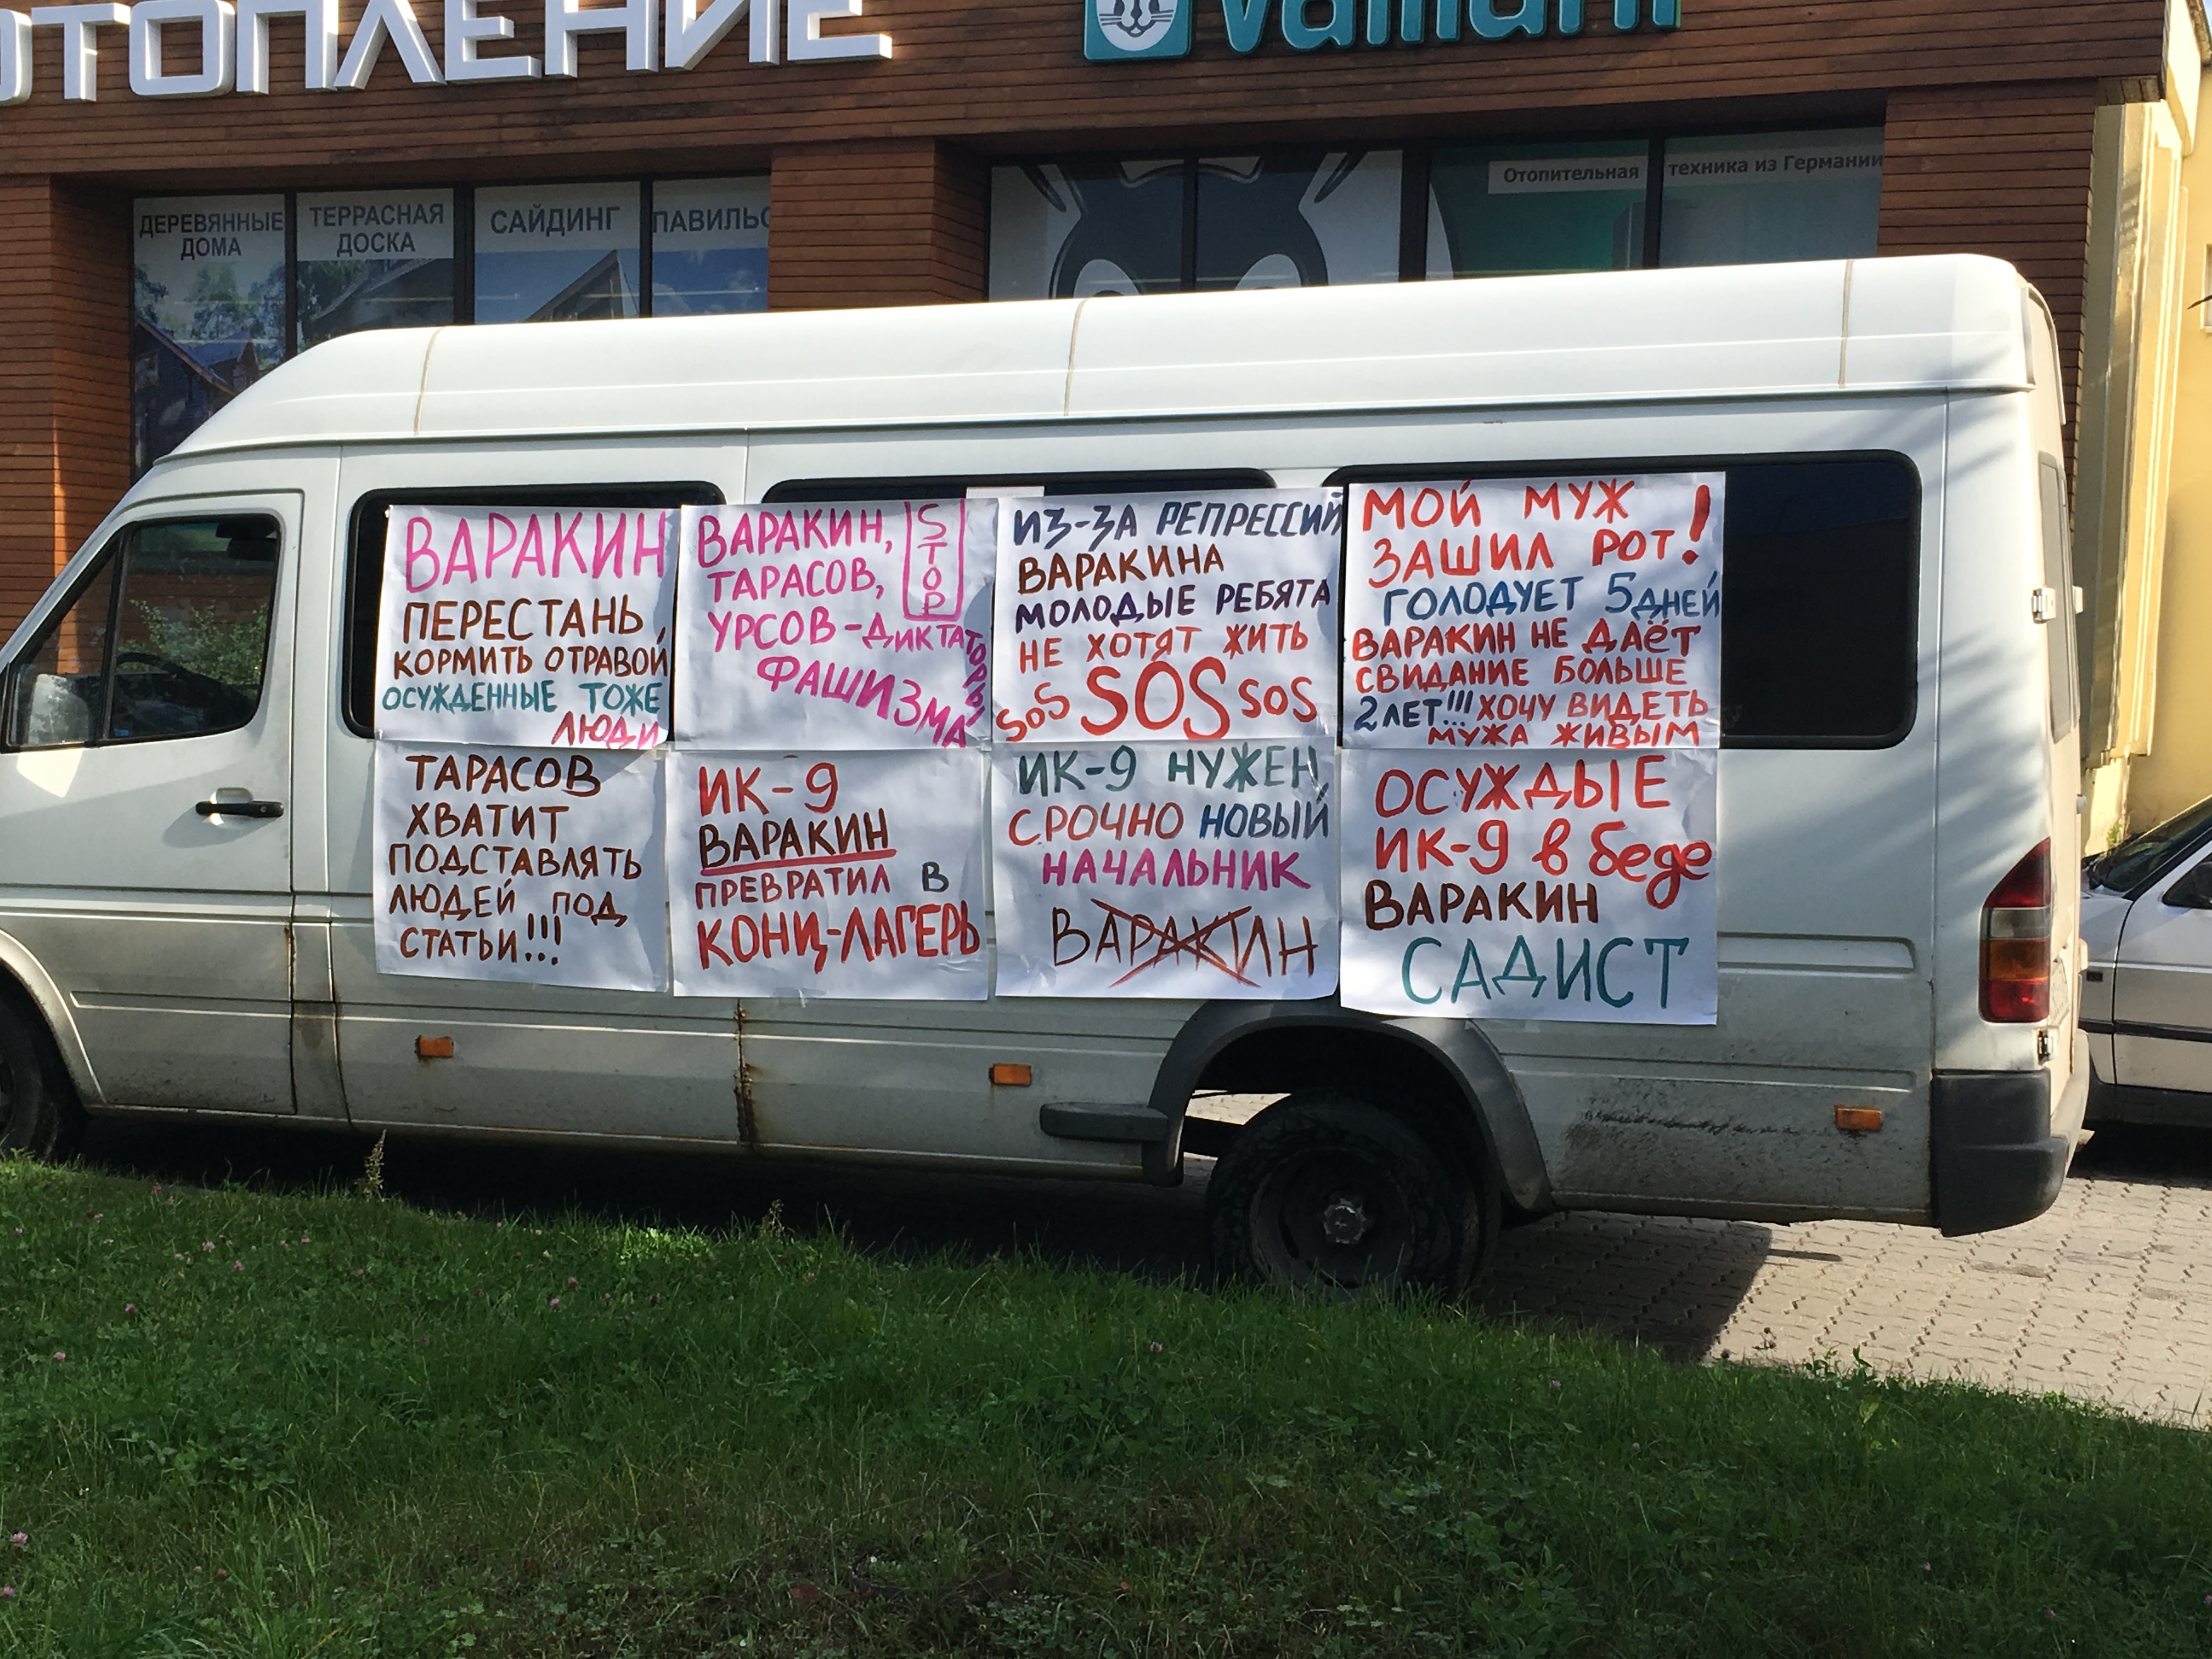 ОТОПЛЕНИЕ
Vaillant
ДЕРЕВЯННЫЕ
ДОМА
ТЕРРАСНАЯ
ДОСКА
САЙДИНГ
ПАВИЛЬО
Отопительная
техника из Германии
ВАРАКИН
ПЕРЕСТАНЬ
КОРМИТЬ ОТРАВОЙ,
ОСУЖДЕННЫЕ ТОЖЕ
ЛЮДИ
ВАРАКИН,
ТАРАСОВ,
УРСОВ-ДИКТАТОРЫ
ФАШИЗМА
STOP
ИЗ-ЗА РЕПРЕССИЙ
ВАРАКИНА
МОЛОДЫЕ РЕБЯТА
НЕ ХОТЯТ ЖИТЬ
SOS SOS SOS
МОЙ МУЖ
ЗАШИЛ РОТ!
ГОЛОДУЕТ 5 ДНЕЙ
ВАРАКИН НЕ ДАЁТ
СВИДАНИЕ БОЛЬШЕ
2 ЛЕТ!!! ХОЧУ ВИДЕТЬ
МУЖА ЖИВЫМ
ТАРАСОВ
ХВАТИТ
ПОДСТАВЛЯТЬ
ЛЮДЕЙ ПОД
СТАТЬИ!!!
ИК-9
ВАРАКИН
ПРЕВРАТИЛ В
КОНЦ-ЛАГЕРЬ
ИК-9 НУЖЕН
СРОЧНО НОВЫЙ
НАЧАЛЬНИК
ВАРАКИН
ОСУЖДЫЕ
ИК-9 в беде
ВАРАКИН
САДИСТ